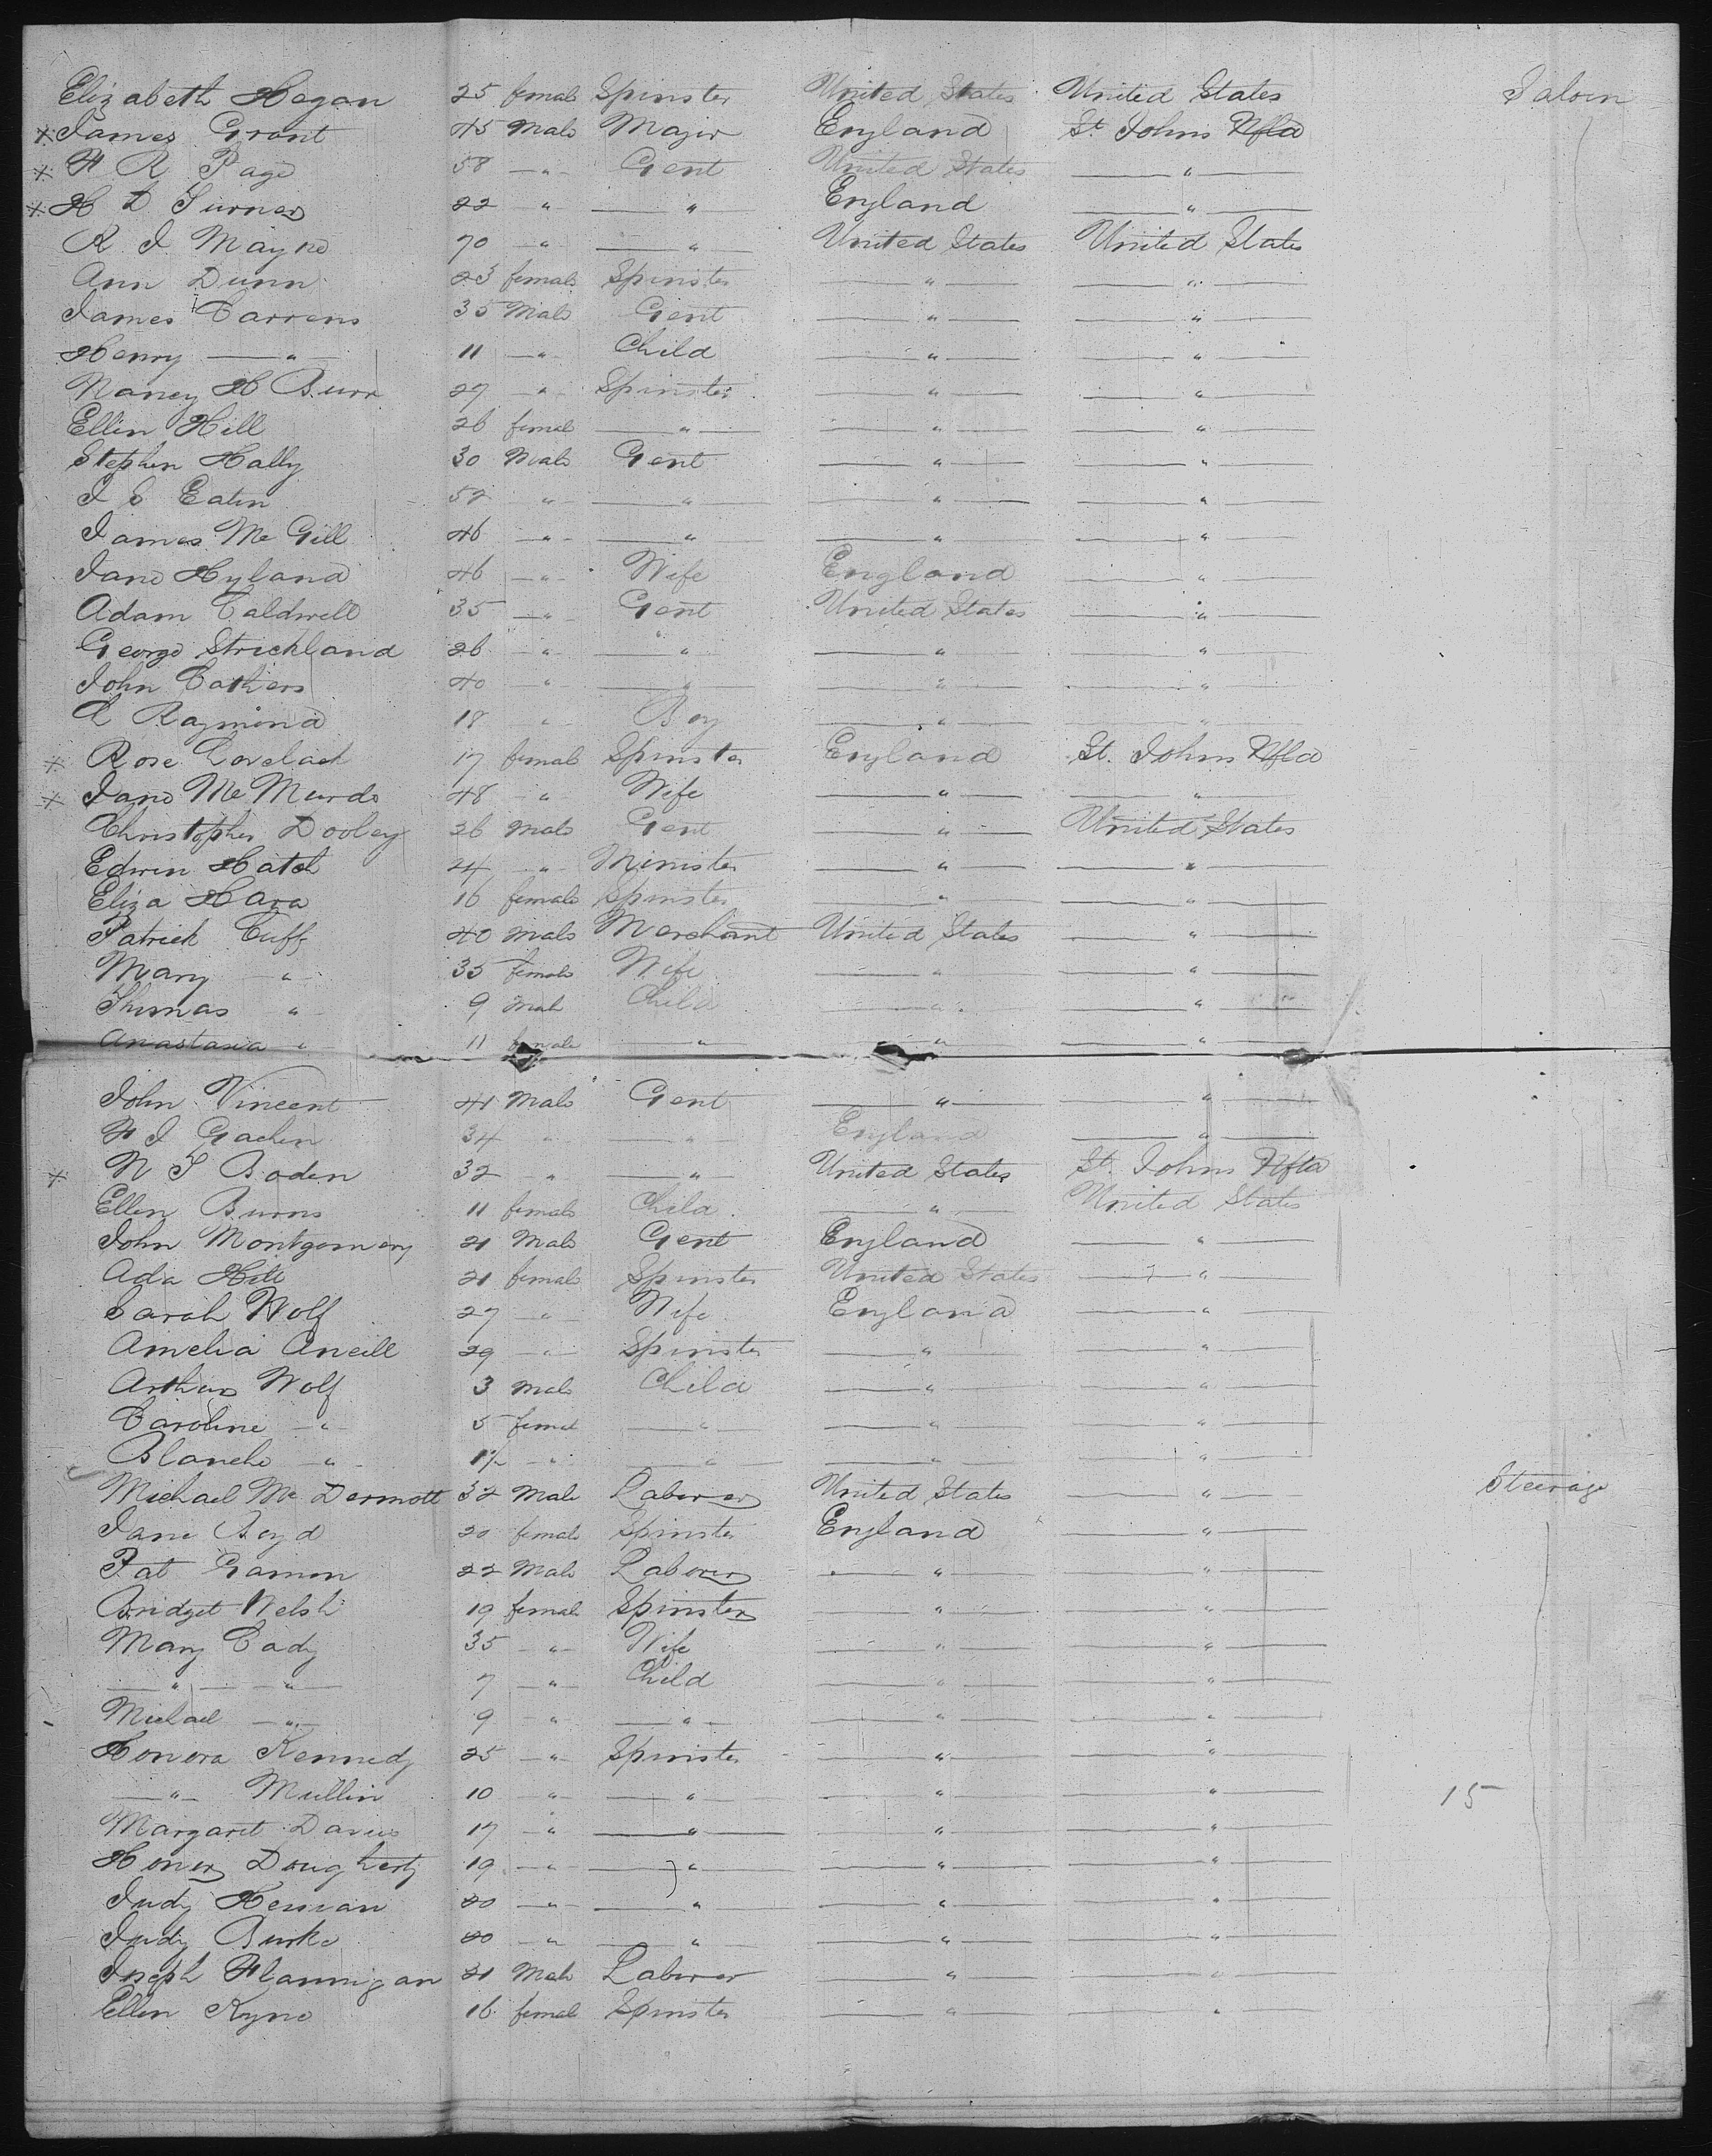 Elizabeth Hogan 25 female Spinster United States United States Saloon
× James Grant 45 Male Major England St Johns Nfld
× H R Page 58 " Gent United States "
× H D Turner 22 " " England "
R J Mayne 70 " " United States United States
Ann Dunn 23 female Spinster " "
James Carrens 35 Male Gent " "
Henry " 11 " Child " "
Nancy H Burr 27 " Spinster " "
Ellen Hill 26 female " " "
Stephen Hally 30 Male Gent " "
J C Eaton 52 " " " "
James Mc Gill 46 " " " "
Jane Hyland 46 " Wife England "
Adam Caldwell 35 " Gent United States "
George Strickland 26 " " " "
John Cathers 40 " " " "
A Raymond 18 " Boy " "
× Rose Lovelack 17 female Spinster England St. Johns Nfld
× Jane Mc Murdo 48 " Wife " "
Christopher Dooley 26 Male Gent " United States
Edwin Hatch 24 " Minister " "
Eliza Hara 16 female Spinster " "
Patrick Cuff 40 male Merchant United States "
Mary " 35 female Wife " "
Thomas " 9 Male Child " "
Anastasia " 11 female " " "
John Vincent 41 Male Gent " "
H J Gachen 34 " " England "
× N S Boden 32 " " United States St. Johns Nfld
Ellen Burns 11 female Child " United States
John Montgomery 21 Male Gent England "
Ada Hill 21 female Spinster United States "
Sarah Wolf 27 " Wife England "
Amelia Aneill 29 " Spinster " "
Arthur Wolf 3 Male Child " "
Caroline " 5 female " " "
Blanche " 1½ " " " "
Michael Mc Dermott 32 Male Laborer United States " Steerage
Jane Boyd 20 female Spinster England "
Pat Gamon 22 Male Laborer " "
Bridget Welsh 19 female Spinster " "
Mary Cady 35 " Wife " "
" " 7 " Child " "
Michael " 9 " " " "
Honora Kennedy 25 " Spinster " "
" Mullin 10 " " " " 15
Margaret Davis 17 " " " "
Honor Dougherty 19 " " " "
Judy 20 " " " "
Judy Burke 20 " " " "
Joseph Flannigan 21 Male Laborer " "
Ellen Kyne 16 female Spinster " "